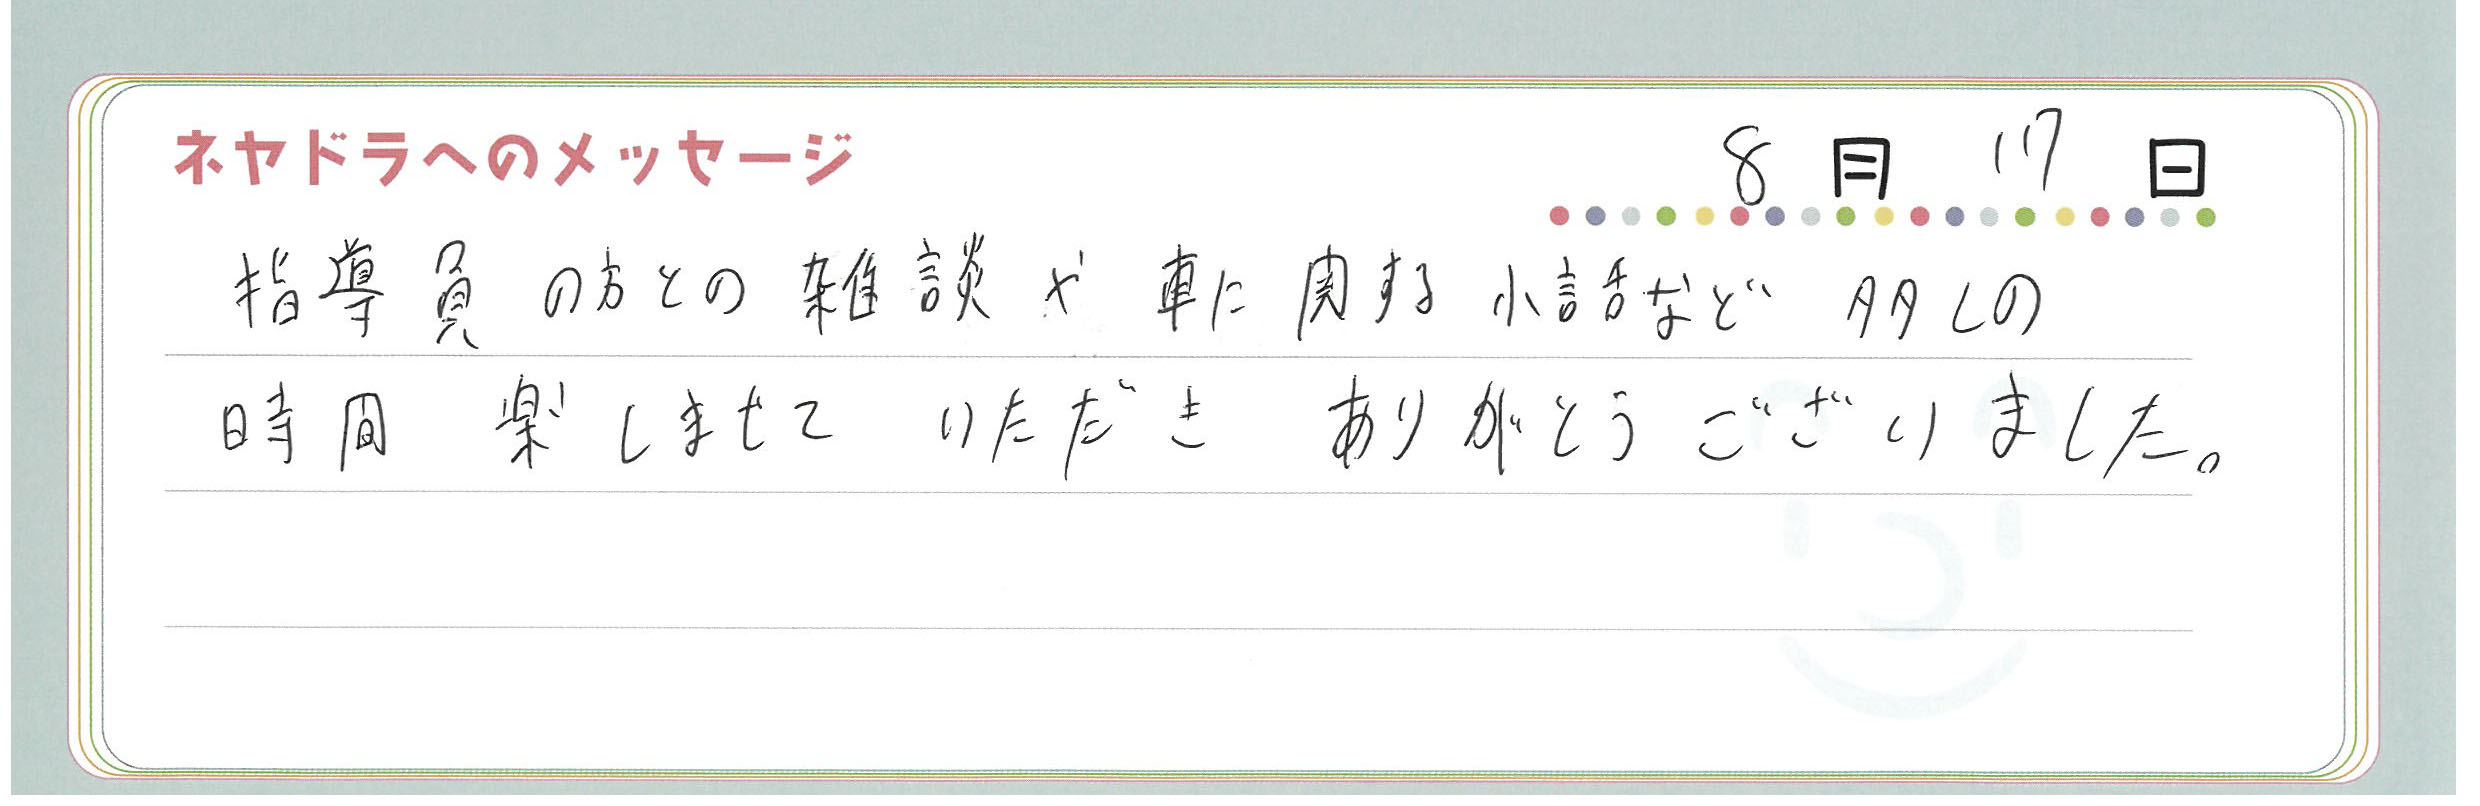 ネヤドラへのメッセージ
8月17日
指導員の方との雑談や車に関する小話など多くの
時間 楽しませていただき ありがとうございました。